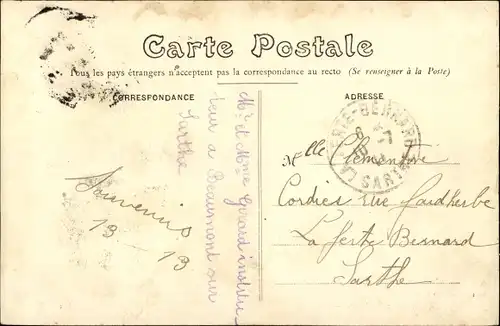 Carte Postale
Tous les pays étrangers n'acceptent pas la correspondance au recto (Se renseigner à la Poste)
CORRESPONDANCE
ADRESSE
Souvenirs
13 - 13
Mr et Mme Gérard institu
teur a Beaumont sur
Sarthe
LA FERTE-BERNARD
SARTHE
Melle Clémentine
Cordier rue Faidherbe
La ferte Bernard
Sarthe